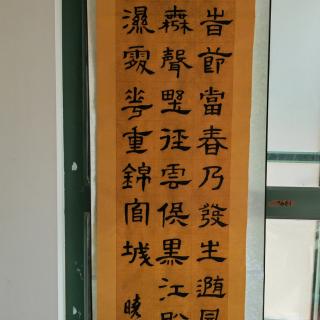 旹節當春乃發生隨風
無聲野徑雲俱黑江
濕處華重錦官城